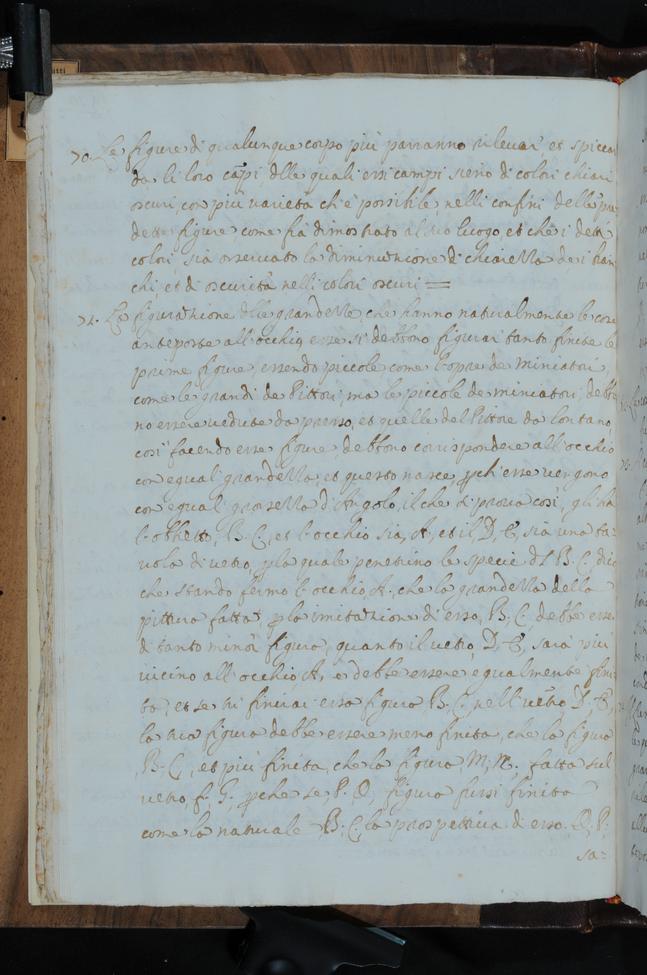 70. Le figure di qualunque corpo più parranno rilevar et spiccar
da li loro cãpi, dlle quali essi campi sieno di colori chiari
oscuri, con più varietà ch'è possibile nelli confini della pre
dette figure, come fia dimostrato al suo luogo, et che i detti
colori, sia osservato la diminuzione di chiarezza de i bian
chi, et di oscurità nelli colori oscuri =
71. La figurazione dlle grandezze, che hanno naturalmente le cose
anteposte all'occhio, esse si debbono figurar tanto finite le
prime figure, essendo piccole come l'opre de Miniatori,
come le grandi de Pittori, ma le piccole de miniatori, debbo
no essere vedute da presso, et quelle del Pittore da lontano,
così facendo esse figure debbono corrispondere all'occhio
con egual grandezza, et questo nasce pch'esse vengono
con egual grossezza d'Angolo, il che si prova così, gli sia
l'obbietto, B. C., et l'occhio sia, A, et il D, E, sia una ta
vola di vetro, p la quale penetrino le specie dl B. C. dico
che stando fermo l'occhio, A, che la grandezza della
pittura fatta p la imitazione di esso, B, C. debbe esser
di tanto minor figura, quanto il vetro, D, E, sarà più
vicino all'occhio A, e debbe essere egualmente fini
ta, et se tu finirai essa figura B. C. nell vetro D, E,
la tua figura debbe essere meno finita, che la figura
B: C, et più finita, che la figura, M, N. fatta sul
vetro f. G. pche se, P. D, figura fussi finita
come la naturale B: C. la prospettiva di esso. D. P.
sa=